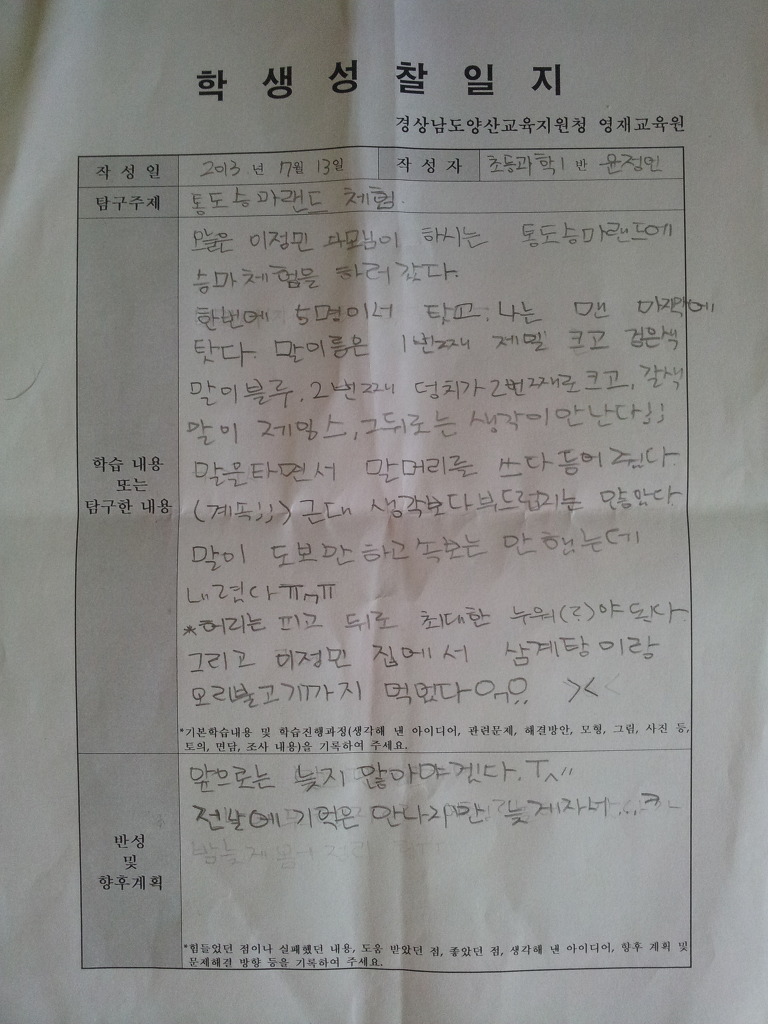 학 생 성 찰 일 지
경상남도양산교육지원청 영재교육원
작 성 일 2013 년 7월 13일 작 성 자 초등과학1 반 윤정민
탐구주제 통도승마랜드 체험.
오늘은 이정민 부모님이 하시는 통도승마랜드에
승마체험을 하러갔다.
한번에 5명이서 탔고, 나는 맨 마지막에
탔다. 말이름은 1번째 제일 크고 검은색
말이블루, 2번째 덩치가 2번째로크고, 갈색
말이 제임스, 그뒤로는 생각이안난다;;
학습 내용
또는
탐구한 내용
말을타면서 말머리를 쓰다듬어줬다.
(계속;;) 근대 생각보다부드럽지는 않았다.
말이 도보만하고속보는 안했는데
내렸다ㅠㅠ
*허리는 피고 뒤로 최대한 누워(?)야된다.
그리고 이정민 집에서 삼계탕이랑
오리불고기까지 먹었다 ><
*기본학습내용 및 학습진행과정(생각해 낸 아이디어, 관련문제, 해결방안, 모형, 그림, 사진 등,
토의, 면담, 조사 내용)을 기록하여 주세요.
반성
및
향후계획
앞으로는 늦지 않아야겠다.
전날에 기억은 안나지만 늦게자서...
*힘들었던 점이나 실패했던 내용, 도움 받았던 점, 좋았던 점, 생각해 낸 아이디어, 향후 계획 및
문제해결 방향 등을 기록하여 주세요.